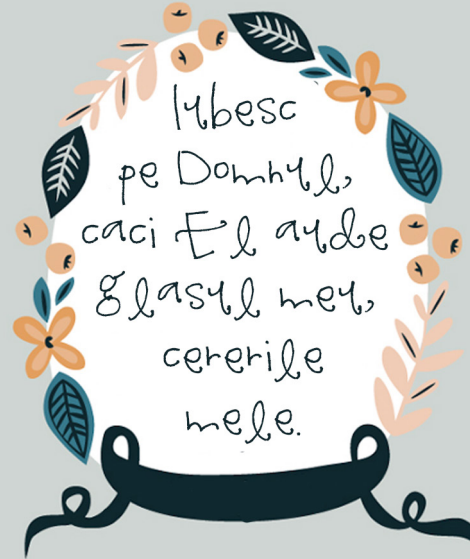 Iubesc
pe Domnul,
caci El aude
glasul meu,
cererile
mele.